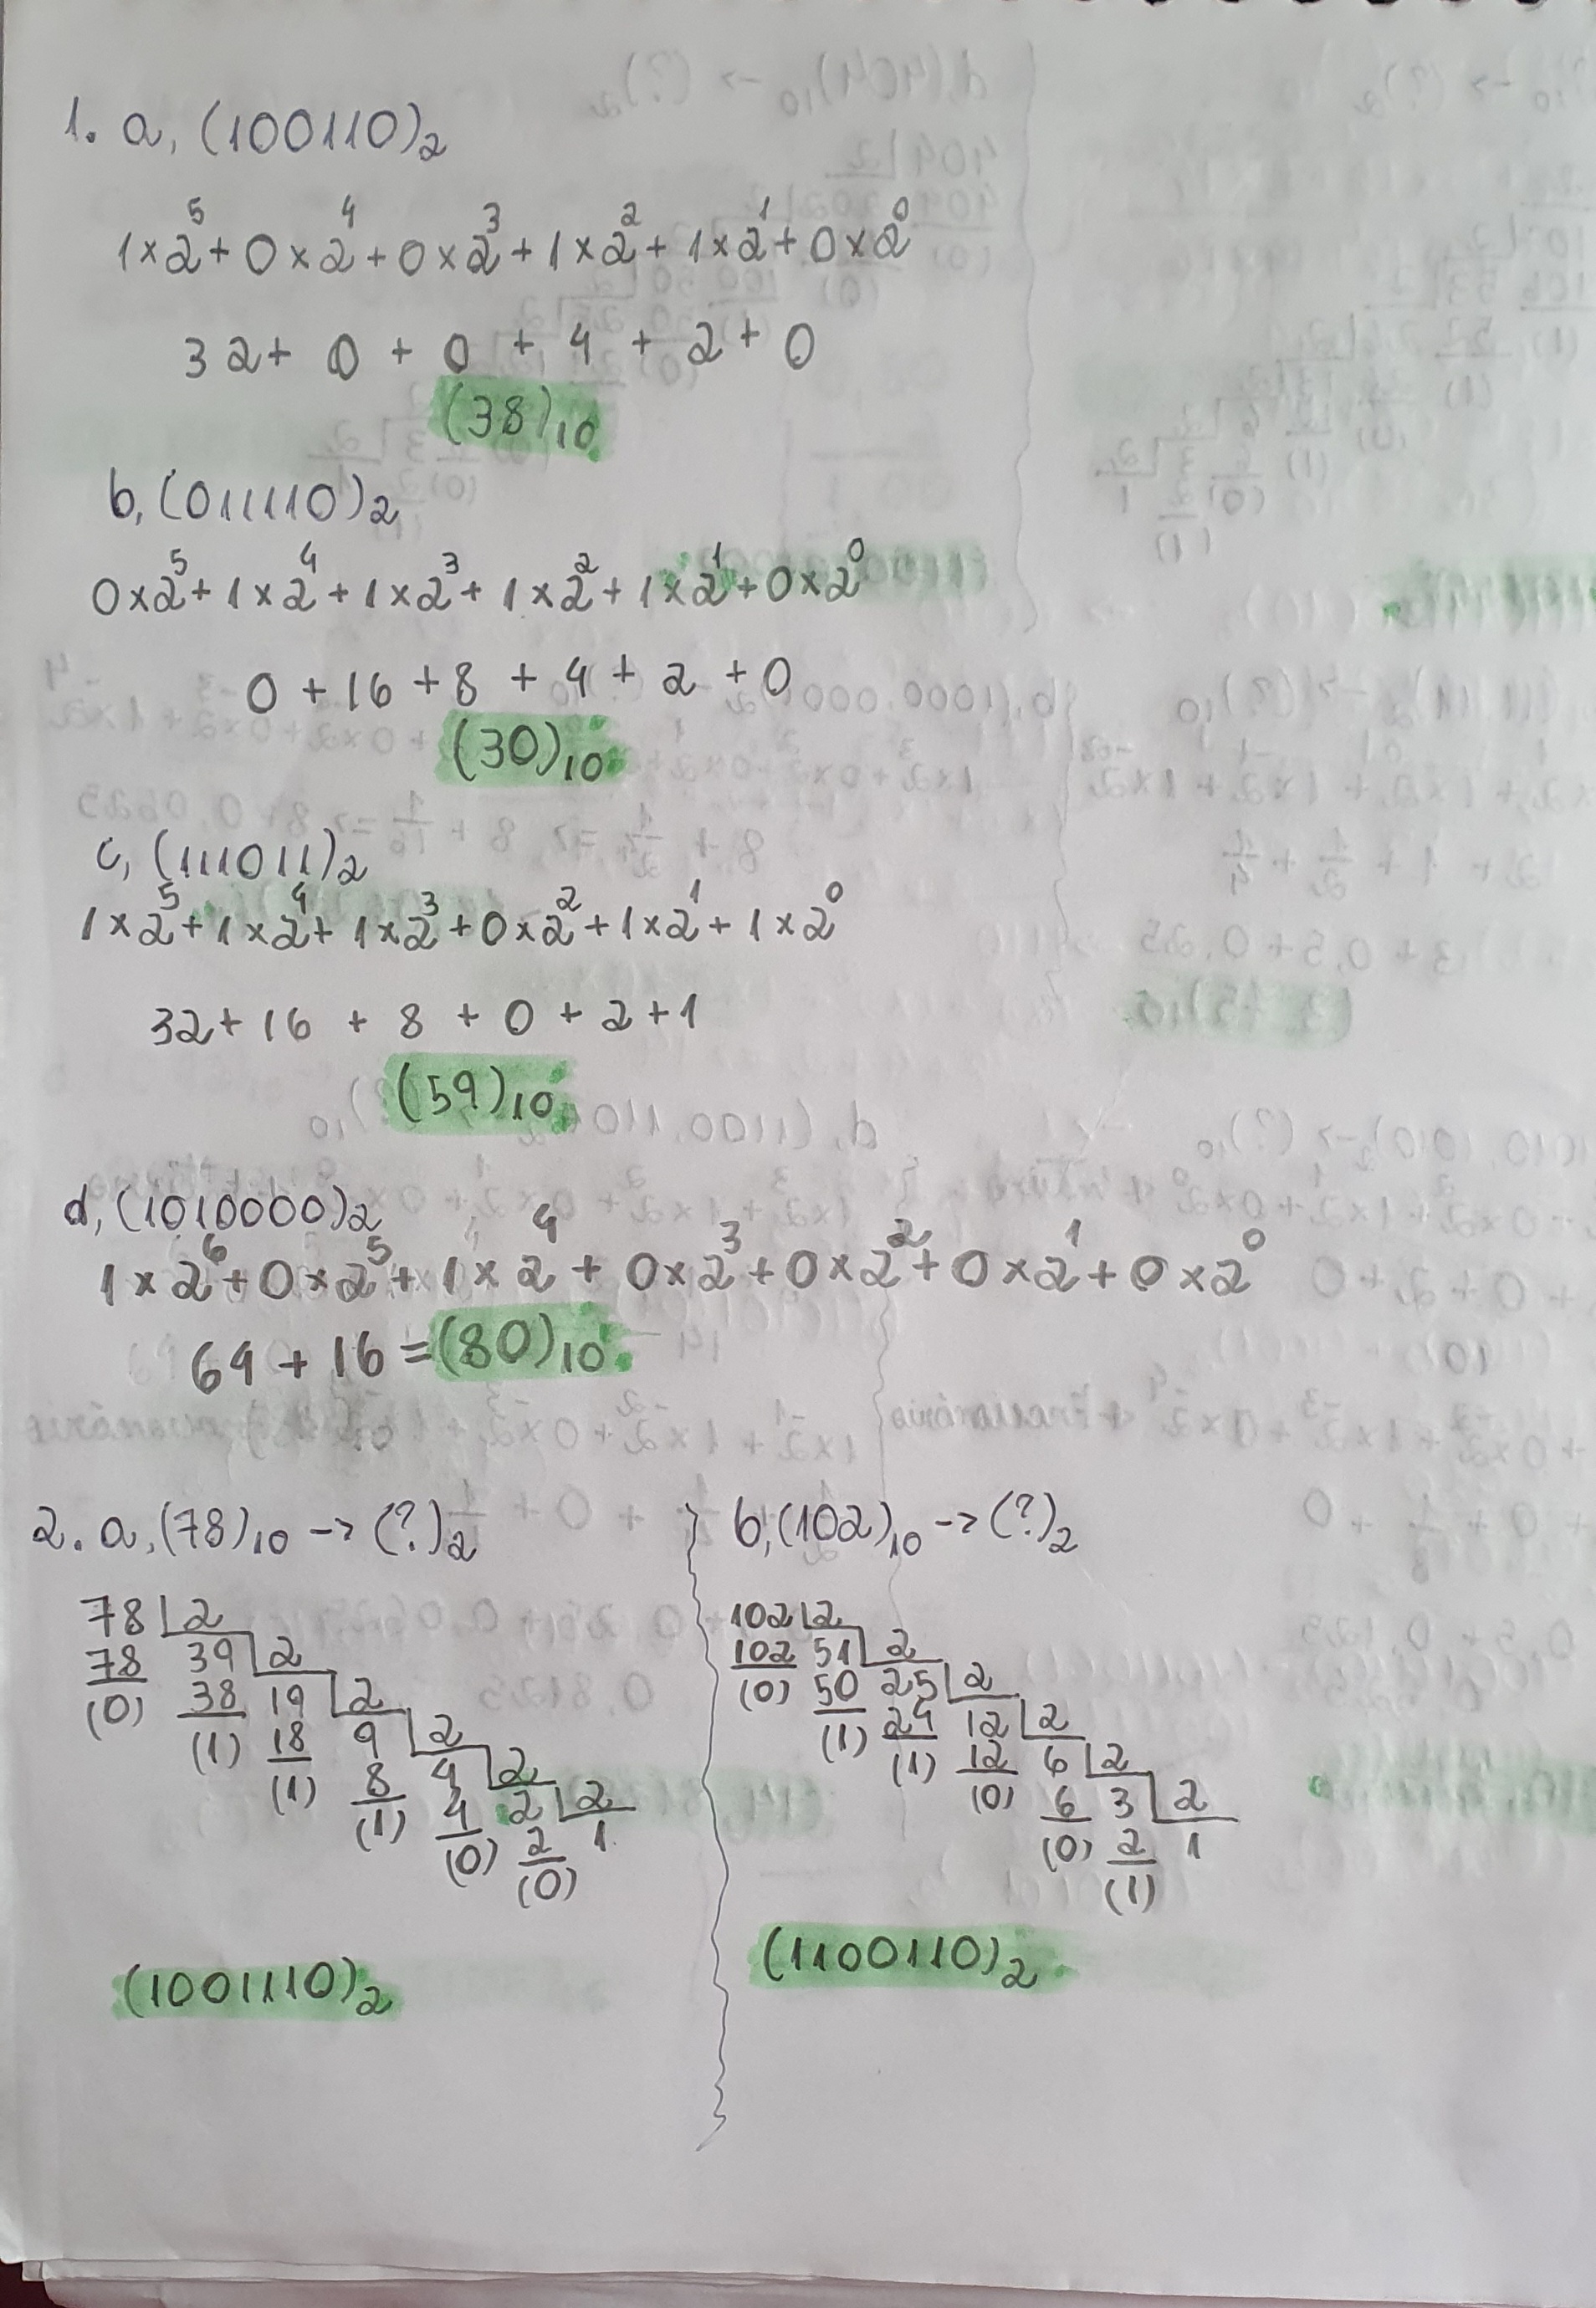 1. a, (100110)₂
1×2⁵+0×2⁴+0×2³+1×2²+1×2¹+0×2⁰
32+ 0 + 0 + 4 + 2 + 0
(38)₁₀
b, (011110)₂
0×2⁵+1×2⁴+1×2³+1×2²+1×2¹+0×2⁰
0 + 16 + 8 + 4 + 2 + 0
(30)₁₀
c, (111011)₂
1×2⁵+1×2⁴+1×2³+0×2²+1×2¹+1×2⁰
32+ 16 + 8 + 0 + 2 + 1
(59)₁₀
d, (1010000)₂
1×2⁶+0×2⁵+1×2⁴+0×2³+0×2²+0×2¹+0×2⁰
64 + 16 = (80)₁₀
2. a, (78)₁₀ -> (?)₂
78 2
78 39 2
(0) 38 19 2
(1) 18 9 2
(1) 8 4 2
(1) 4 2 2
(0) 2 1
(0)
(1001110)₂
b, (102)₁₀ -> (?)₂
102 2
102 51 2
(0) 50 25 2
(1) 24 12 2
(1) 12 6 2
(0) 6 3 2
(0) 2 1
(1)
(1100110)₂